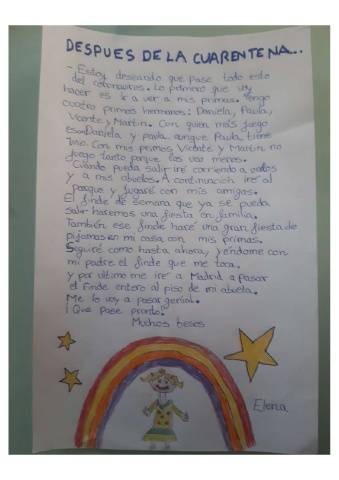 DESPUES DE LA CUARENTENA...
- Estoy deseando que pase todo esto
del coronavirus. Lo primero que voy
hacer es ir a ver a mis primas. Tengo
cuatro primos hermanos: Daniela, Paula,
Vicente y Martin. Con quien más juego
es con Daniela y paula aunque Paula tiene
uno. Con mis primos Vicente y Martin no
juego tanto porque los veo menos.
Cuando pueda salir iré corriendo a verlos
y a mis abuelos. A continuación iré al
parque y jugaré con mis amigas.
El finde de semana que ya se pueda
salir haremos una fiesta en familia.
También ese finde haré una gran fiesta de
pijamas en mi casa con mis primas.
Seguiré como hasta ahora, yéndome con
mi padre el finde que me toca.
y por ultimo me iré a Madrid a pasar
el finde entero al piso de mi abuela.
Me lo voy a pasar genial.
¡Que pase pronto!
Muchos besos
Elena